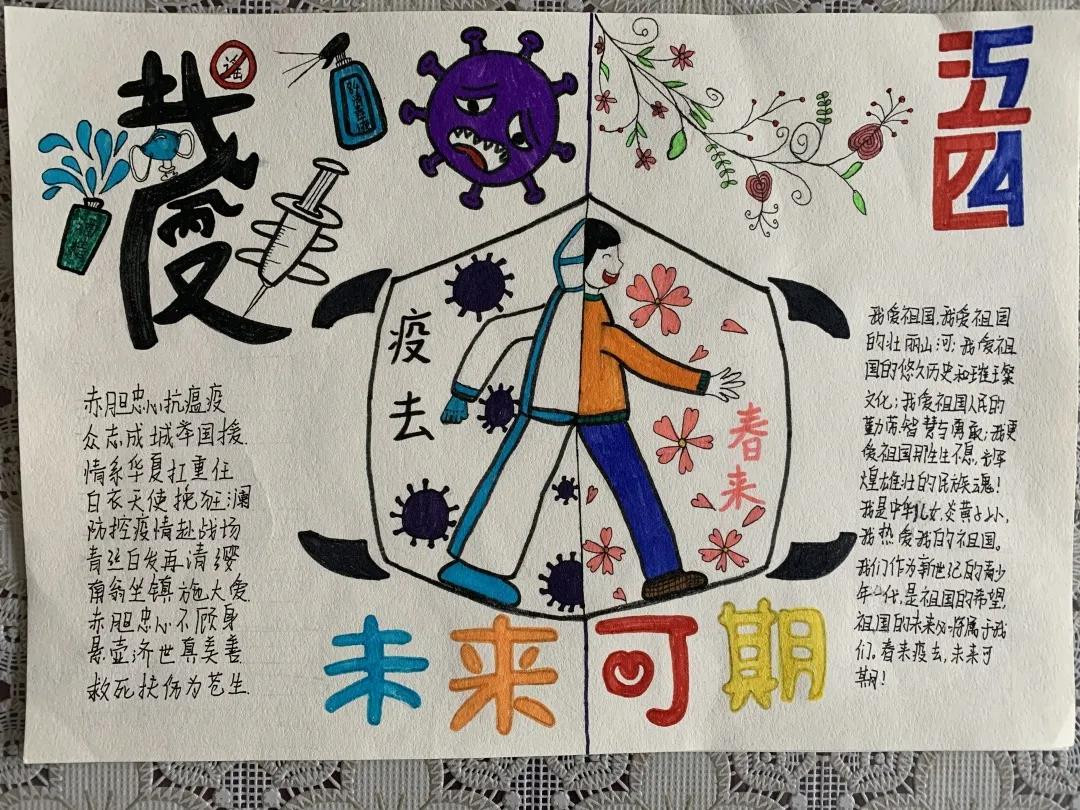 战疫
谣
84消毒液
酒精
五四
疫去
春来
赤胆忠心抗瘟疫
众志成城举国援.
情系华夏扛重任
白衣天使挽狂澜
防控疫情赴战场
青丝白发再请缨
南翁坐镇施大爱
赤胆忠心不顾身
悬壶济世真美善
救死扶伤为苍生
我爱祖国,我爱祖国
的壮丽山河;我爱祖
国的悠久历史和璀璨
文化;我爱祖国人民的
勤劳、智慧与勇敢;我更
爱祖国那生生不息,
煌雄壮的民族魂!
我是中华儿女,炎黄子孙,
我热爱我的祖国。
我们作为新世纪的青少
年一代,是祖国的希望,
祖国的未来必将属于我
们。春来疫去,未来可
期!
未来可期